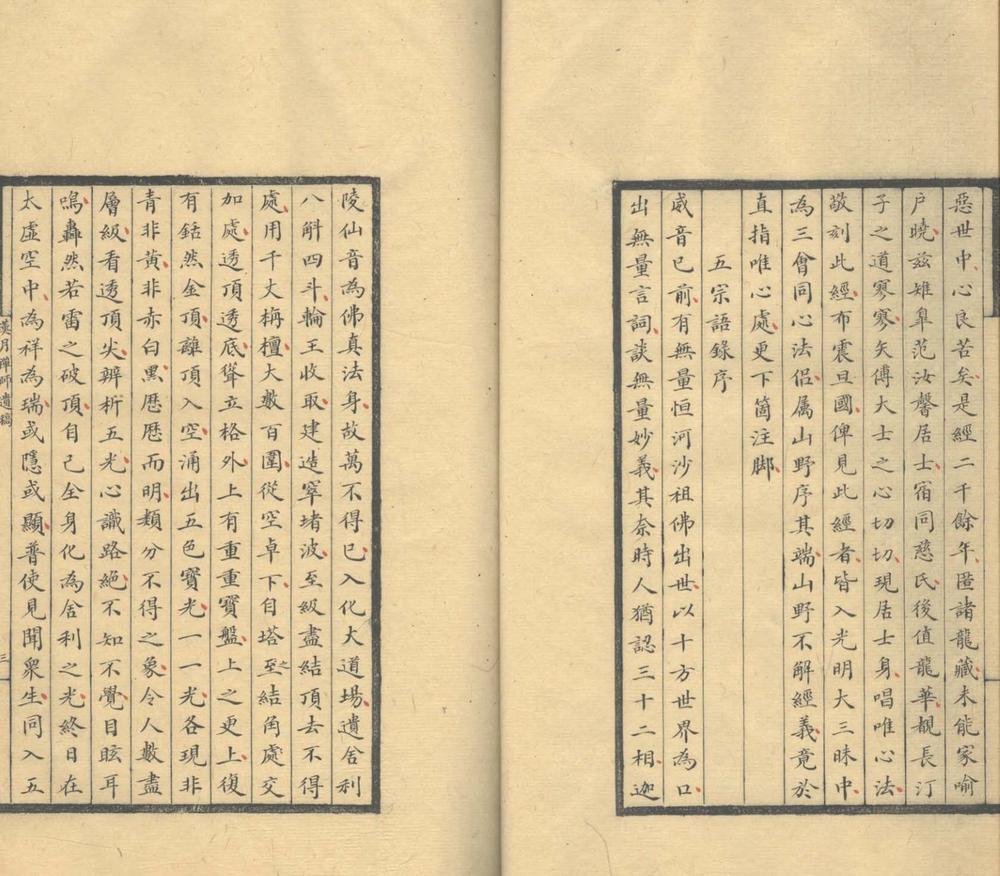 惡世中心良苦矣是經二千餘年匿諸龍藏未能家喻
户曉兹雉臯范汝馨居士宿同慈氏後值龍華覩長汀
子之道寥寥矣傅大士之心切切現居士身唱唯心法
敬刻此經布震旦國俾見此經者皆入光明大三昧中
為三會同心法侶属山野序其端山野不解經義竟於
直指唯心處更下箇注脚
五宗語錄序
威音已前有無量恒河沙祖佛出世以十方世界為口
出無量言詞談無量妙義其奈時人猶認三十二相迦
陵仙音為佛真法身故萬不得已入化大道場遺舍利
八斛四斗輪王收取建造窣堵波至級盡結頂去不得
處用千丈栴檀大數百圍從空卓下自塔至之結角處交
加處透頂透底聳立格外上有重重寶盤上之更上復
有銛然金頂離頂入空涌出五色寶光一一光各現非
青非黃非赤白黑歷歷而明類分不得之象令人數盡
層級看透頂尖辨析五光心識路絶不知不覺目眩耳
鳴轟然若雷之破頂自己全身化為舍利之光終日在
太虛空中為祥為瑞或隱或顯普使見聞衆生同入五
漢月禪師遺稿
三